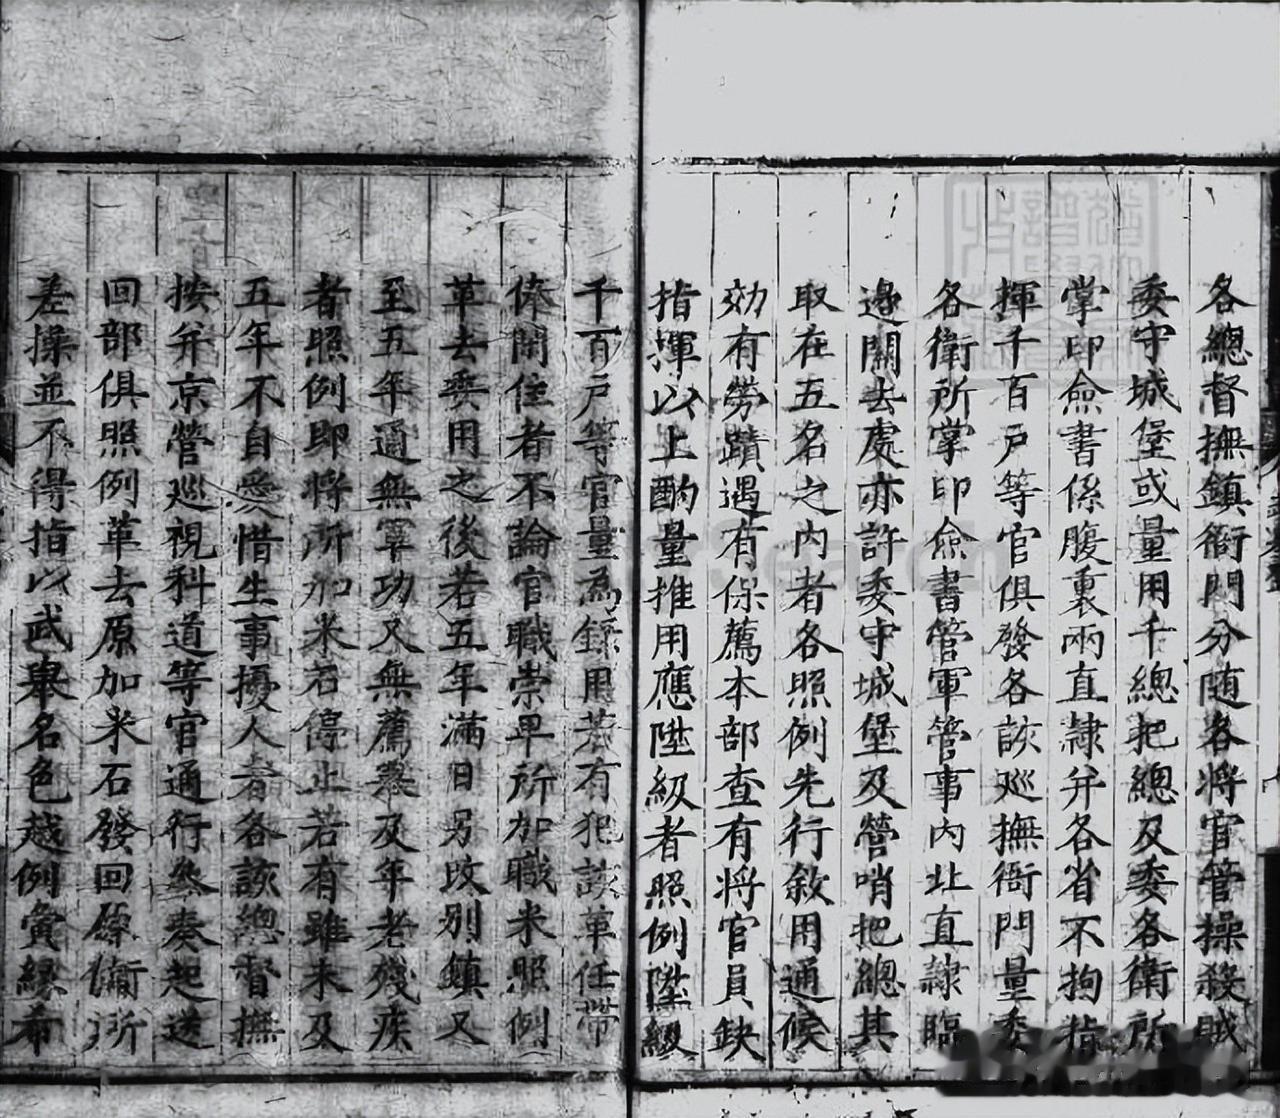 各總督撫鎮衙門分随各将官管操殺賊
委守城堡或量用千總把總及委各衛所
掌印僉書係腹裏兩直隷并各省不拘指
揮千百户等官俱發各該巡撫衙門量委
各衛所掌印僉書管軍管事内北直隷臨
邉關去處亦許委守城堡及營哨把總其
取在五名之内者各照例先行敘用通候
効有勞蹟遇有保薦本部查有将官員缺
指揮以上酌量推用應陞級者照例陞級
千百户等官量為錄用若有犯該革任帶
俸閑住者不論官職崇卑所加職米照例
革去委用之後若五年滿日另改别鎮又
至五年通無軍功又無薦舉及年老殘疾
者照例即将所加米石停止若有雖未及
五年不自愛惜生事擾人者各該總督撫
按并京營巡視科道等官通行叅奏起送
回部俱照例革去原加米石發回原衛所
差操並不得指以武舉名色越例夤緣希